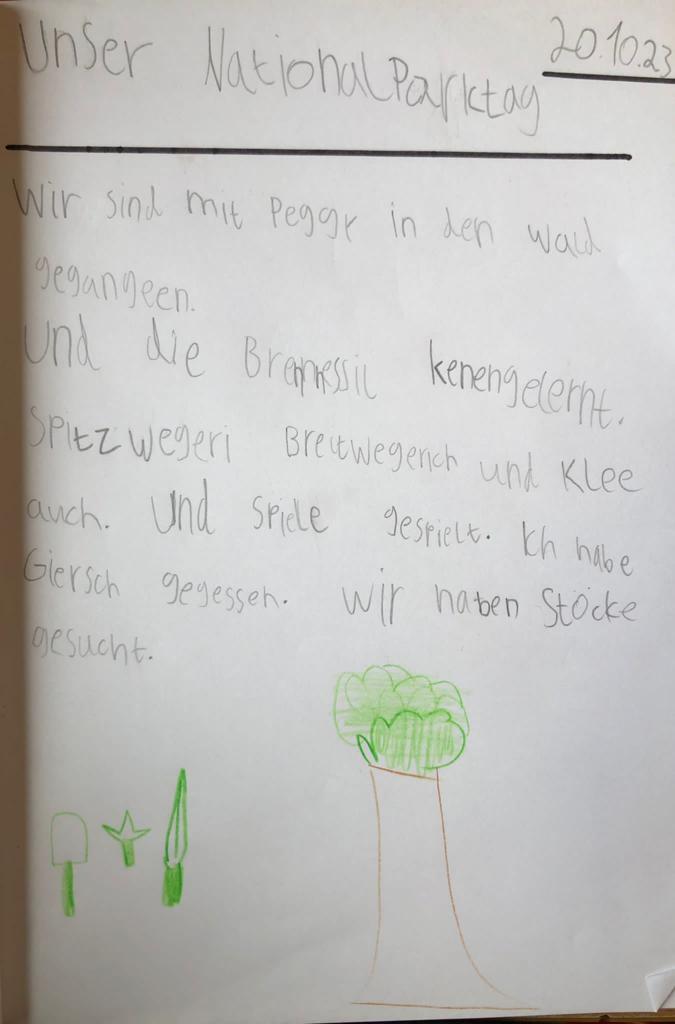 20.10.23
Unser NationalParktag
Wir sind mit Peggy in den Wald
gegangeen.
Und die Brennessil kenengelernt.
Spitzwegeri Breitwegerich und Klee
auch. Und Spiele gespielt. Ich habe
Giersch gegessen. Wir haben Stöcke
gesucht.